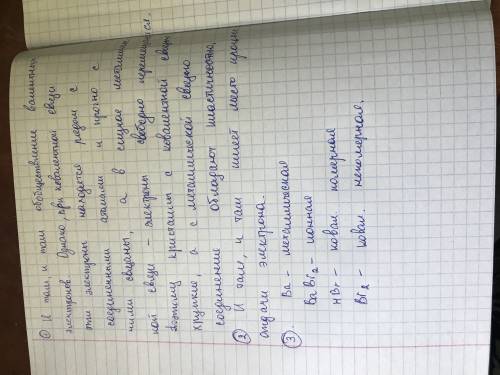 ① И там, и там обобществление валентных
электронов. Однако, при ковалентной связи
эти электроны находятся рядом с
соединёнными атомами и прочно с
ними связаны, а в случае металлич
ной связи – электроны свободно перемещ ся.
Поэтому кристаллы с ковалентной связи
хрупкие, а с металлической связью
соединение обладают пластичностью.
② И там, и там имеет место
отдачи электрона.
③ Ba – металлическая
BaBr2 – ионная
HBr – ковал полярная
Br2 – ковал. неполярная.